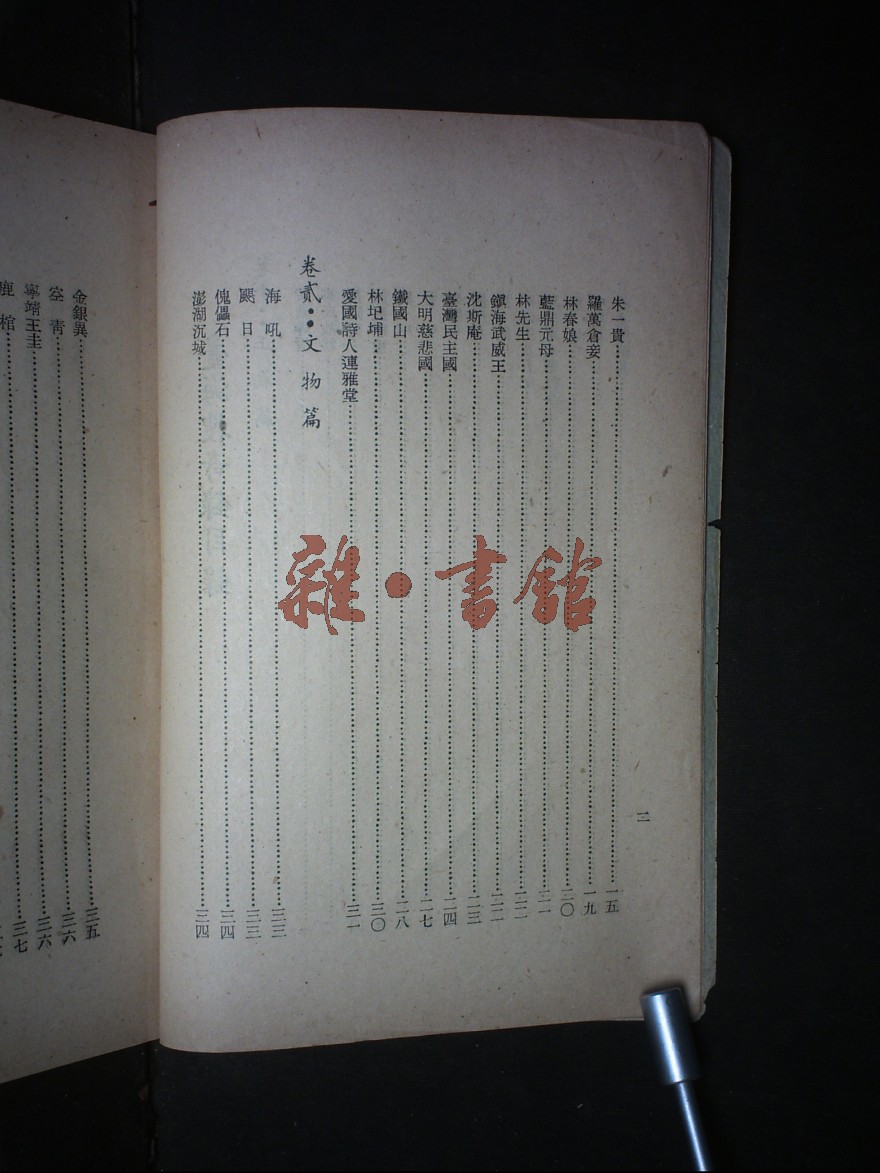 朱一貴……一五
羅萬倉妾……一九
林春娘……二〇
藍鼎元母……二一
林先生……二二
鎭海武威王……二二
沈斯庵……二三
臺灣民主國……二四
大明慈悲國……二七
鐵國山……二八
林圯埔……三〇
愛國詩人連雅堂……三一
卷貳··文物篇
海吼……三三
颶日……三三
傀儡石……三四
澎湖沉城……三四
二
金銀異……三五
空青……三六
寧靖王圭……三六
鹿棺……三七
雜·書館